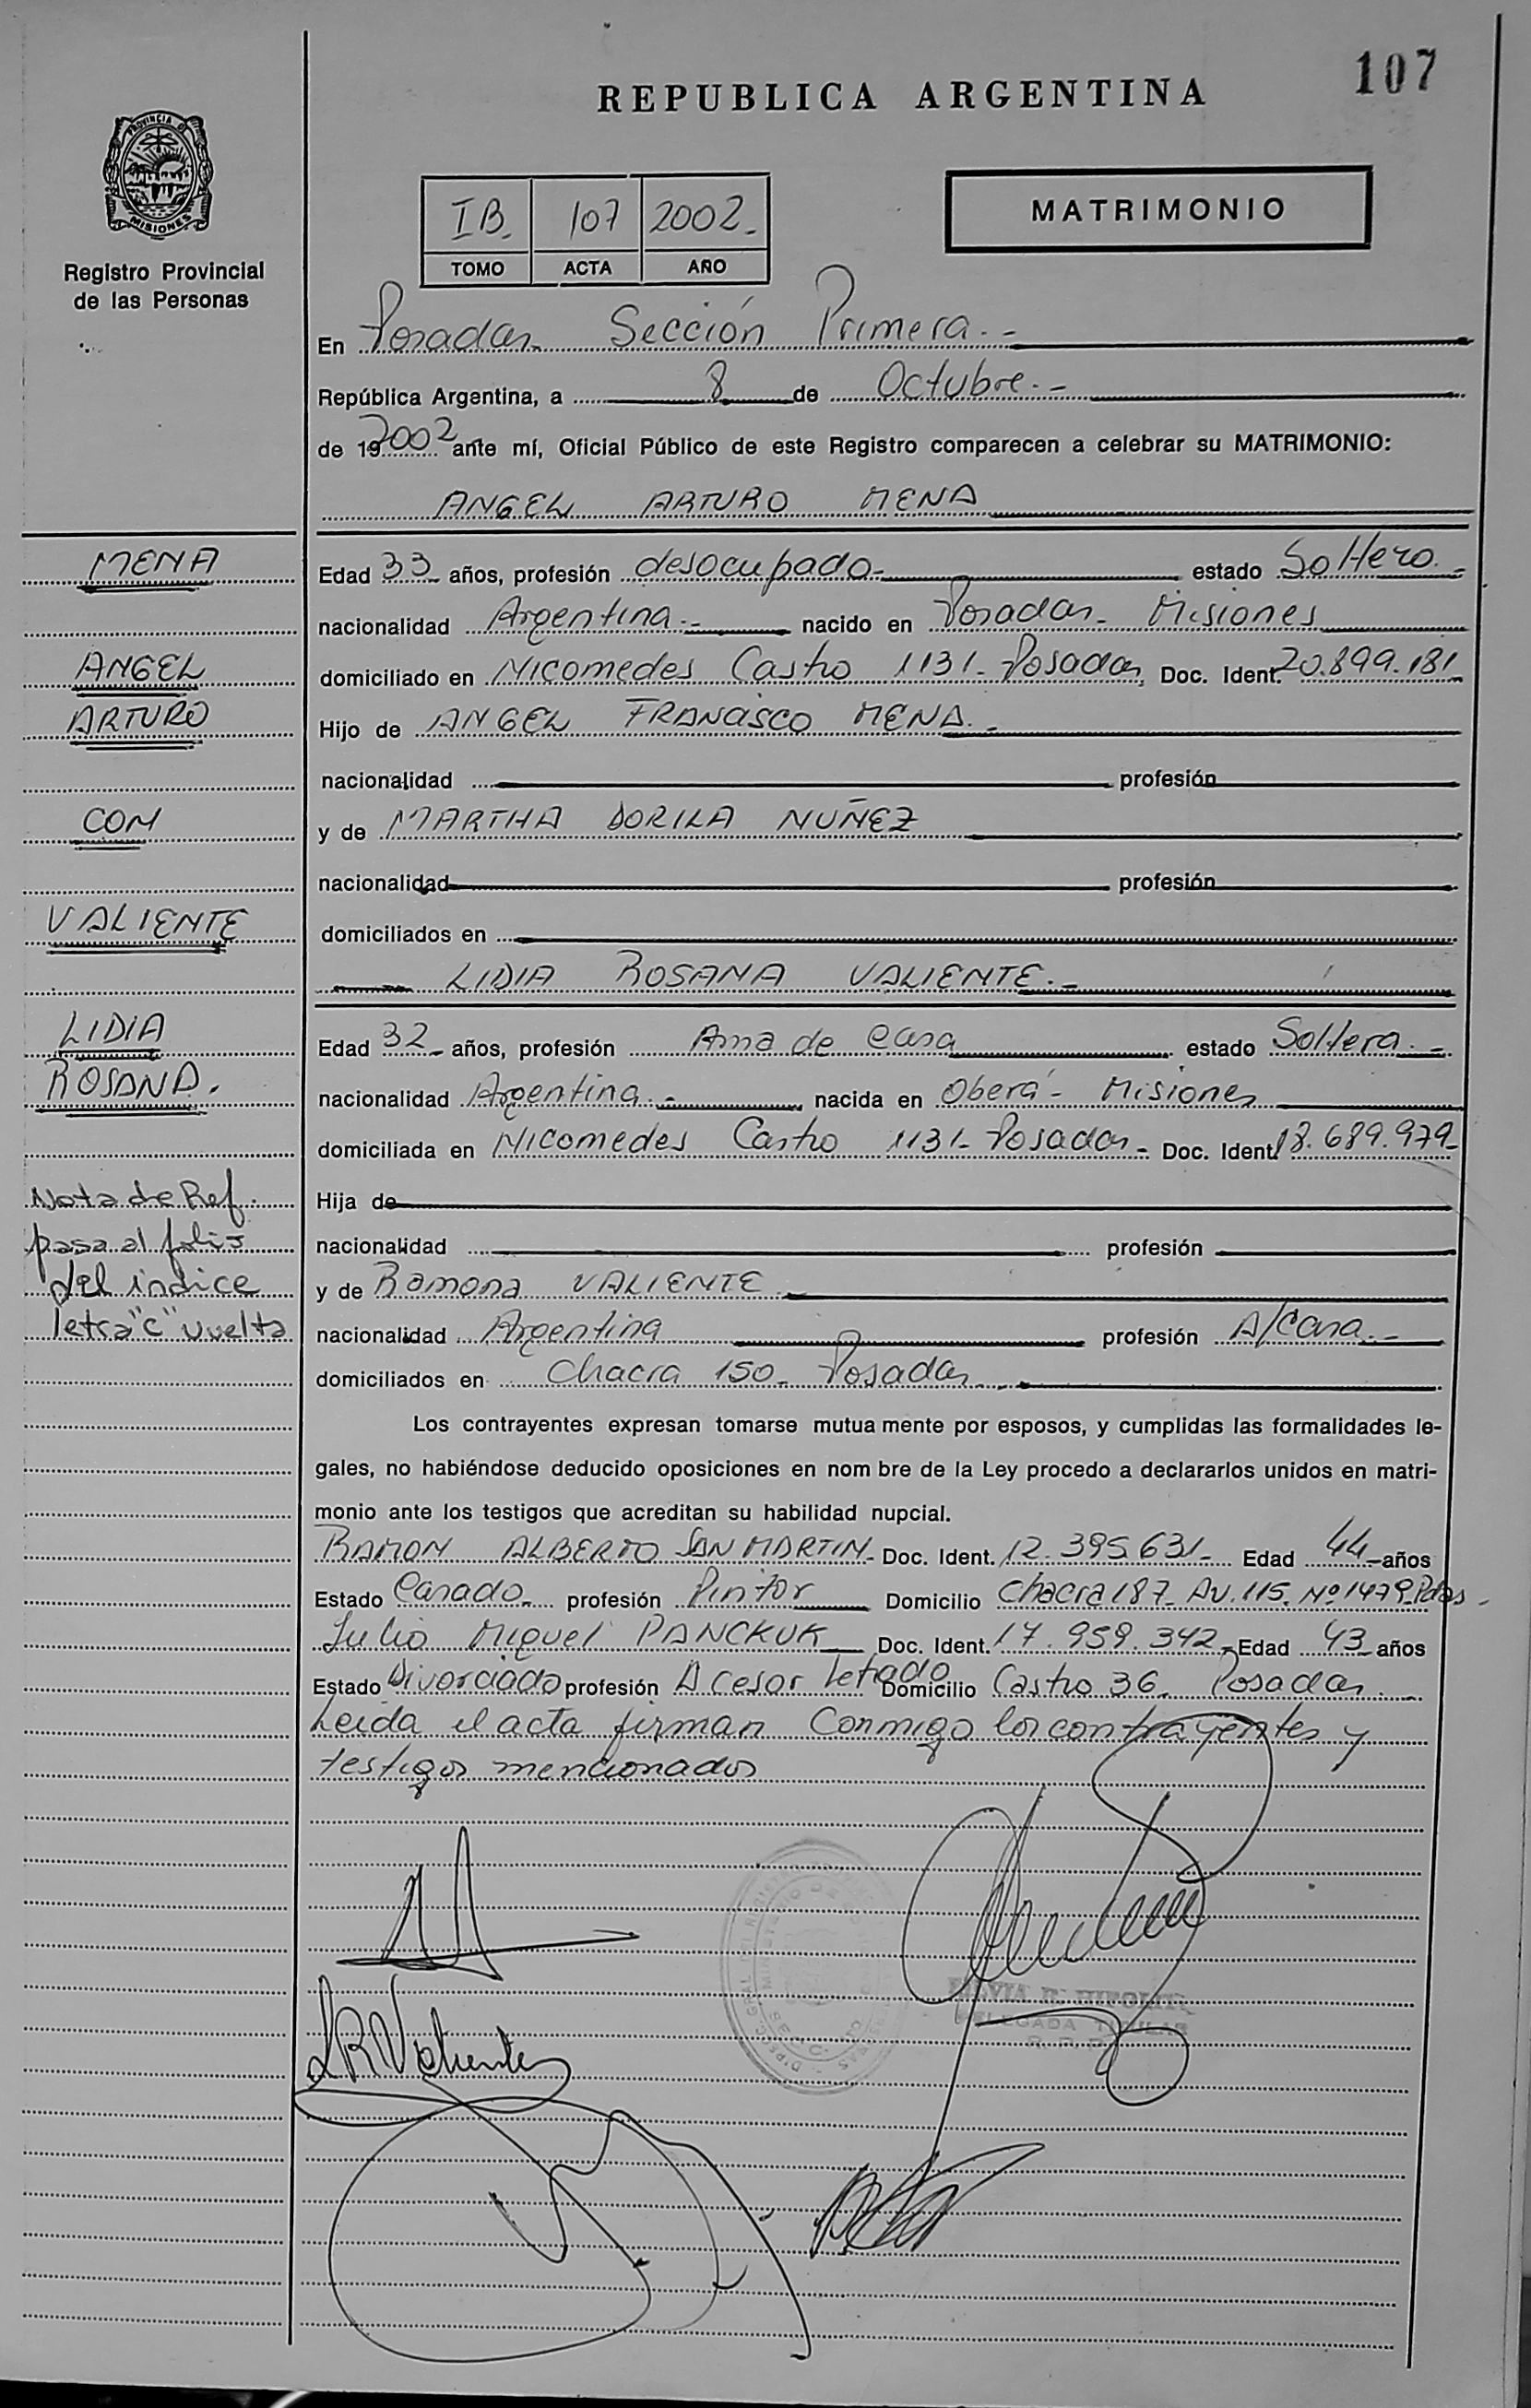 107
REPUBLICA ARGENTINA
PROVINCIA DE
MISIONES
Registro Provincial
de las Personas
IB. 107 2002.-
TOMO ACTA AÑO
MATRIMONIO
En Posadas- Sección Primera.-
República Argentina, a 8 de Octubre.-
de 19 2002 ante mí, Oficial Público de este Registro comparecen a celebrar su MATRIMONIO:
ANGEL ARTURO MENA
MENA
ANGEL
ARTURO
CON
VALIENTE
LIDIA
ROSANA.
Nota de Ref.
pasa al folio
del indice
letra "C" vuelta
Edad 33- años, profesión desocupado- estado Soltero.-
nacionalidad Argentina.- nacido en Posadas- Misiones
domiciliado en Nicomedes Castro 1131- Posadas Doc. Ident. 20.899.181-
Hijo de ANGEL FRANCISCO MENA.-
nacionalidad profesión
y de MARTHA DORILA NUÑEZ
nacionalidad profesión
domiciliados en
LIDIA ROSANA VALIENTE.-
Edad 32- años, profesión Ama de Casa estado Soltera.-
nacionalidad Argentina.- nacida en Oberá- Misiones
domiciliada en Nicomedes Castro 1131- Posadas- Doc. Ident. 18.689.979-
Hija de
nacionalidad profesión
y de Ramona VALIENTE
nacionalidad Argentina profesión A/Casa.-
domiciliados en Chacra 150- Posadas
Los contrayentes expresan tomarse mutua mente por esposos, y cumplidas las formalidades le-
gales, no habiéndose deducido oposiciones en nom bre de la Ley procedo a declararlos unidos en matri-
monio ante los testigos que acreditan su habilidad nupcial.
RAMON ALBERTO SAN MARTIN- Doc. Ident. 12.395.631- Edad 44- años
Estado Casado- profesión Pintor Domicilio Chacra 187- AV. 115. Nº 1479- Pdas-
Julio Miguel PANCKUK Doc. Ident. 17.959.342- Edad 43 años
Estado Divorciado profesión Acesor Letrado Domicilio Castro 36- Posadas.-
Leida el acta firman Conmigo los contrayentes y
testigos mencionados
LRValiente